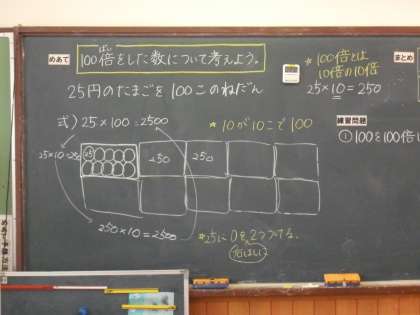 めあて
ばい
100倍をした数について考えよう。
25円のたまごを100このねだん
式) 25×100=2500
*10が10こで100
25×10=250
25
250
250
250×10=2500
*25に0を2つつける。
*100倍とは
10倍の10倍
25×10=250
まとめ
練習問題
①100を100倍